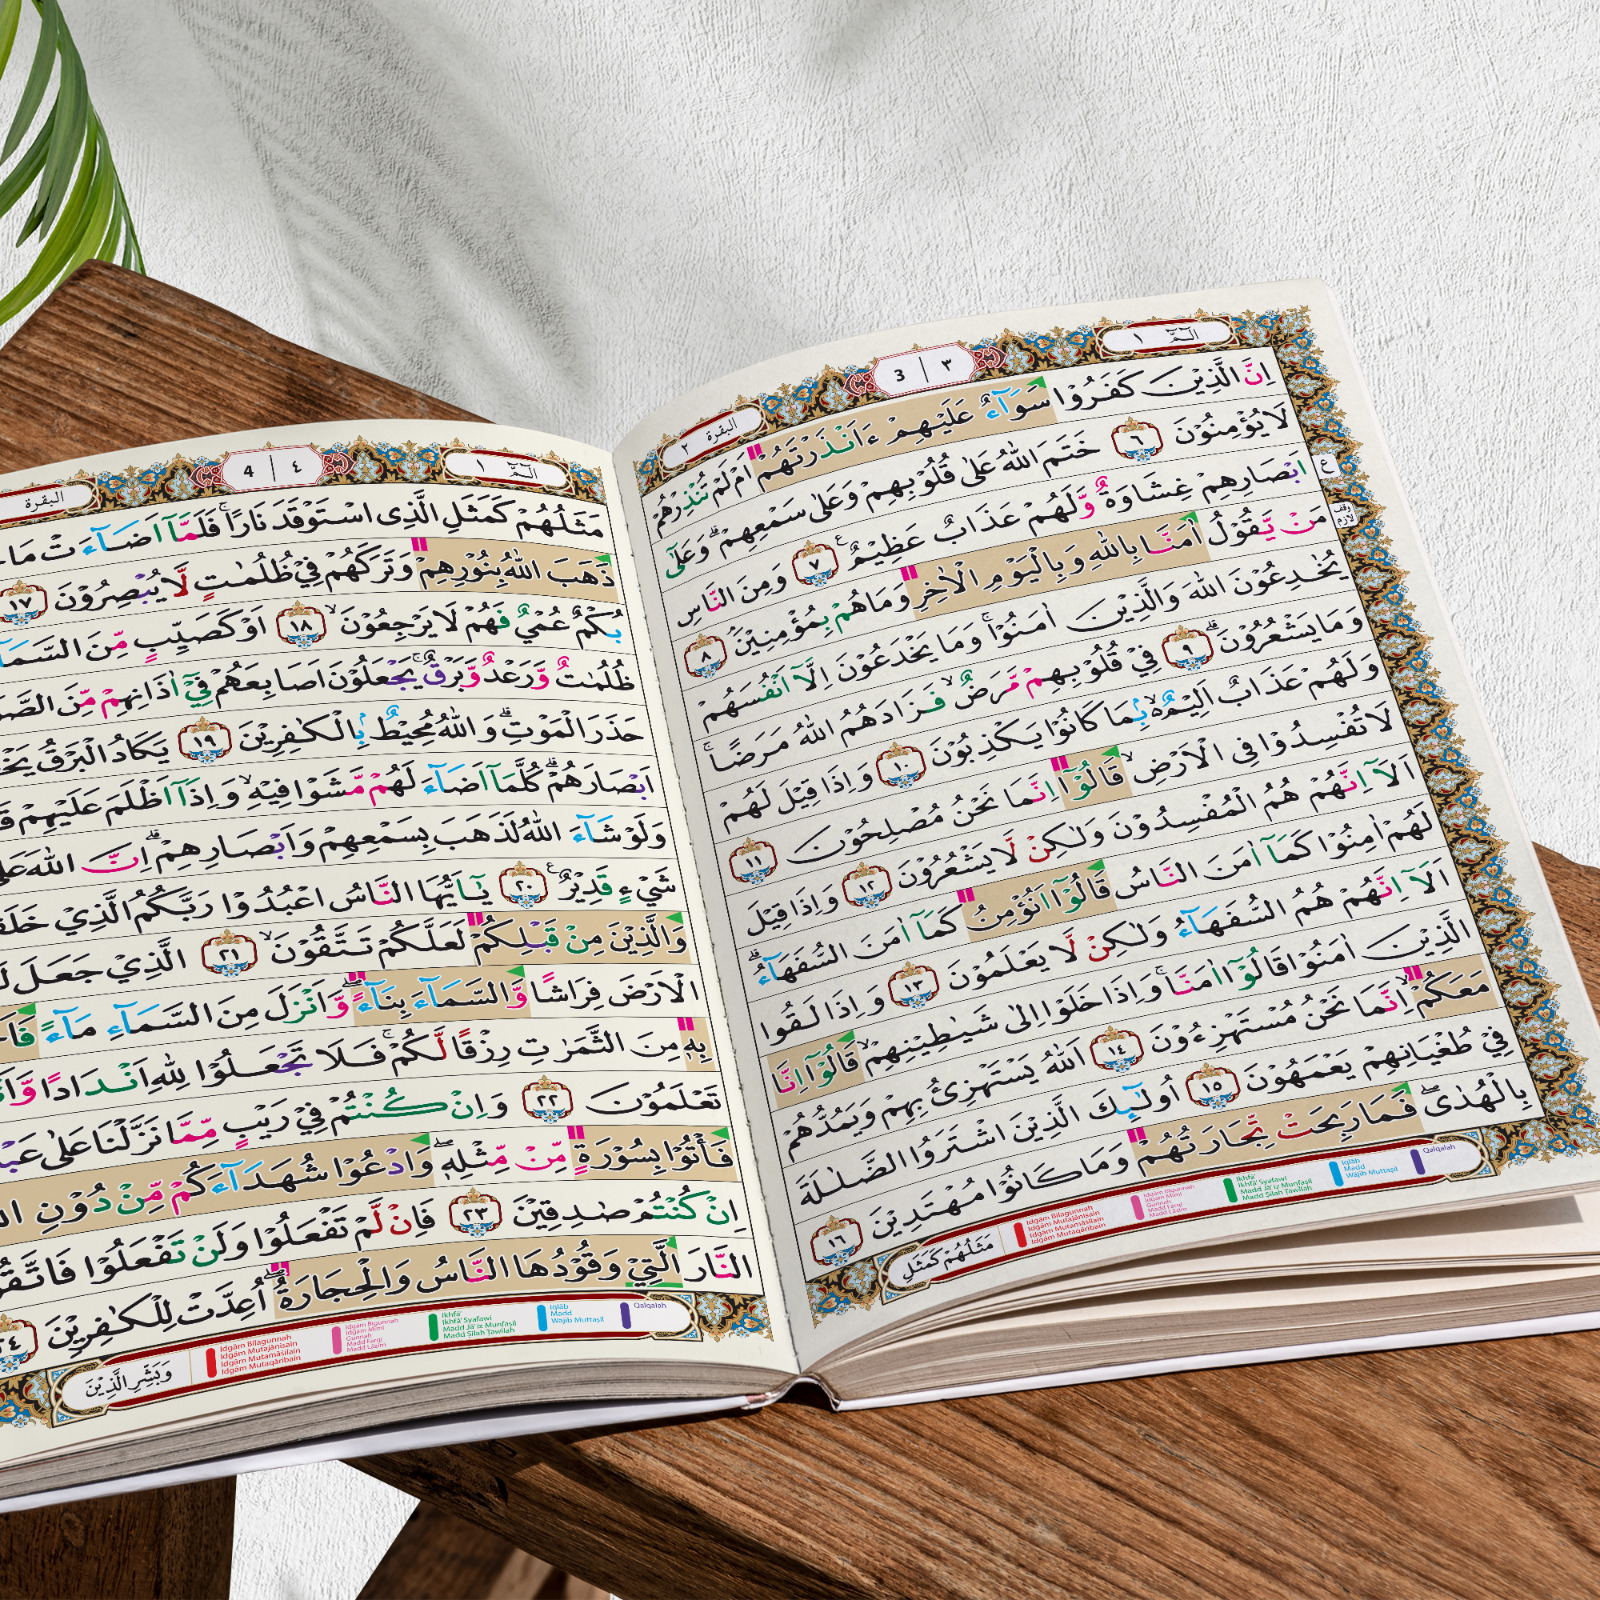 الۤمّۤ ١
٣ | 3
البقرة ٢
اِنَّ الَّذِيْنَ كَفَرُوْا سَوَاۤءٌ عَلَيْهِمْ ءَاَنْذَرْتَهُمْ اَمْ لَمْ تُنْذِرْهُمْ
لَا يُؤْمِنُوْنَ ٦ خَتَمَ اللّٰهُ عَلٰى قُلُوْبِهِمْ وَعَلٰى سَمْعِهِمْ ۗ وَعَلٰٓى
اَبْصَارِهِمْ غِشَاوَةٌ وَّلَهُمْ عَذَابٌ عَظِيْمٌ ࣖ ٧ وَمِنَ النَّاسِ
ع
مَنْ يَّقُوْلُ اٰمَنَّا بِاللّٰهِ وَبِالْيَوْمِ الْاٰخِرِ وَمَا هُمْ بِمُؤْمِنِيْنَ ۘ ٨
وقف لازم
يُخٰدِعُوْنَ اللّٰهَ وَالَّذِيْنَ اٰمَنُوْا ۚ وَمَا يَخْدَعُوْنَ اِلَّآ اَنْفُسَهُمْ
وَمَا يَشْعُرُوْنَ ۗ ٩ فِيْ قُلُوْبِهِمْ مَّرَضٌ ۙ فَزَادَهُمُ اللّٰهُ مَرَضًا ۚ
وَلَهُمْ عَذَابٌ اَلِيْمٌ ۢ ۙ بِمَا كَانُوْا يَكْذِبُوْنَ ١٠ وَاِذَا قِيْلَ لَهُمْ
لَا تُفْسِدُوْا فِى الْاَرْضِ ۙ قَالُوْٓا اِنَّمَا نَحْنُ مُصْلِحُوْنَ ١١
اَلَآ اِنَّهُمْ هُمُ الْمُفْسِدُوْنَ وَلٰكِنْ لَّا يَشْعُرُوْنَ ١٢ وَاِذَا قِيْلَ
لَهُمْ اٰمِنُوْا كَمَآ اٰمَنَ النَّاسُ قَالُوْٓا اَنُؤْمِنُ كَمَآ اٰمَنَ السُّفَهَاۤءُ ۗ
اَلَآ اِنَّهُمْ هُمُ السُّفَهَاۤءُ وَلٰكِنْ لَّا يَعْلَمُوْنَ ١٣ وَاِذَا لَقُوا
الَّذِيْنَ اٰمَنُوْا قَالُوْٓا اٰمَنَّا ۚ وَاِذَا خَلَوْا اِلٰى شَيٰطِيْنِهِمْ ۙ قَالُوْٓا اِنَّا
مَعَكُمْ ۙ اِنَّمَا نَحْنُ مُسْتَهْزِءُوْنَ ١٤ اَللّٰهُ يَسْتَهْزِئُ بِهِمْ وَيَمُدُّهُمْ
فِيْ طُغْيَانِهِمْ يَعْمَهُوْنَ ١٥ اُولٰۤىِٕكَ الَّذِيْنَ اشْتَرَوُا الضَّلٰلَةَ
بِالْهُدٰى ۖ فَمَا رَبِحَتْ تِّجَارَتُهُمْ وَمَا كَانُوْا مُهْتَدِيْنَ ١٦
مَثَلُهُمْ كَمَثَلِ
Idgām Bilagunnah
Idgām Mutajānisain
Idgām Mutamāsilain
Idgām Mutaqāribain
Idgām Bigunnah
Idgām Mimi
Gunnah
Madd Farqi
Madd Lāzim
Ikhfā'
Ikhfā' Syafawi
Madd Jā'iz Munfaṣil
Madd Ṣilah Ṭawīlah
Iqlāb
Madd
Wājib Muttaṣil
Qalqalah
الۤمّۤ ١
٤ | 4
البقرة
مَثَلُهُمْ كَمَثَلِ الَّذِى اسْتَوْقَدَ نَارًا ۚ فَلَمَّآ اَضَاۤءَتْ مَا
ذَهَبَ اللّٰهُ بِنُوْرِهِمْ وَتَرَكَهُمْ فِيْ ظُلُمٰتٍ لَّا يُبْصِرُوْنَ ١٧
بُكْمٌ عُمْيٌ فَهُمْ لَا يَرْجِعُوْنَ ۙ ١٨ اَوْ كَصَيِّبٍ مِّنَ السَّمَاۤ
ظُلُمٰتٌ وَّرَعْدٌ وَّبَرْقٌ ۚ يَجْعَلُوْنَ اَصَابِعَهُمْ فِيْٓ اٰذَانِهِمْ مِّنَ الصَّ
حَذَرَ الْمَوْتِ ۗ وَاللّٰهُ مُحِيْطٌ ۢ بِالْكٰفِرِيْنَ ١٩ يَكَادُ الْبَرْقُ يَخْ
اَبْصَارَهُمْ ۗ كُلَّمَآ اَضَاۤءَ لَهُمْ مَّشَوْا فِيْهِ ۙ وَاِذَآ اَظْلَمَ عَلَيْهِمْ قَ
وَلَوْ شَاۤءَ اللّٰهُ لَذَهَبَ بِسَمْعِهِمْ وَاَبْصَارِهِمْ ۗ اِنَّ اللّٰهَ عَلٰ
شَيْءٍ قَدِيْرٌ ࣖ ٢٠ يٰٓاَيُّهَا النَّاسُ اعْبُدُوْا رَبَّكُمُ الَّذِيْ خَلَقَ
وَالَّذِيْنَ مِنْ قَبْلِكُمْ لَعَلَّكُمْ تَتَّقُوْنَ ۙ ٢١ الَّذِيْ جَعَلَ لَ
الْاَرْضَ فِرَاشًا وَّالسَّمَاۤءَ بِنَاۤءً ۖ وَّاَنْزَلَ مِنَ السَّمَاۤءِ مَاۤءً فَاَ
بِهٖ مِنَ الثَّمَرٰتِ رِزْقًا لَّكُمْ ۚ فَلَا تَجْعَلُوْا لِلّٰهِ اَنْدَادًا وَّاَ
تَعْلَمُوْنَ ٢٢ وَاِنْ كُنْتُمْ فِيْ رَيْبٍ مِّمَّا نَزَّلْنَا عَلٰى عَبْ
فَأْتُوْا بِسُوْرَةٍ مِّنْ مِّثْلِهٖ ۖ وَادْعُوْا شُهَدَاۤءَكُمْ مِّنْ دُوْنِ ال
اِنْ كُنْتُمْ صٰدِقِيْنَ ٢٣ فَاِنْ لَّمْ تَفْعَلُوْا وَلَنْ تَفْعَلُوْا فَاتَّقُ
النَّارَ الَّتِيْ وَقُوْدُهَا النَّاسُ وَالْحِجَارَةُ ۖ اُعِدَّتْ لِلْكٰفِرِيْنَ ٢٤
وَبَشِّرِ الَّذِيْنَ
Idgām Bilagunnah
Idgām Mutajānisain
Idgām Mutamāsilain
Idgām Mutaqāribain
Idgām Bigunnah
Idgām Mimi
Gunnah
Madd Farqi
Madd Lāzim
Ikhfā'
Ikhfā' Syafawi
Madd Jā'iz Munfaṣil
Madd Ṣilah Ṭawīlah
Iqlāb
Madd
Wājib Muttaṣil
Qalqalah